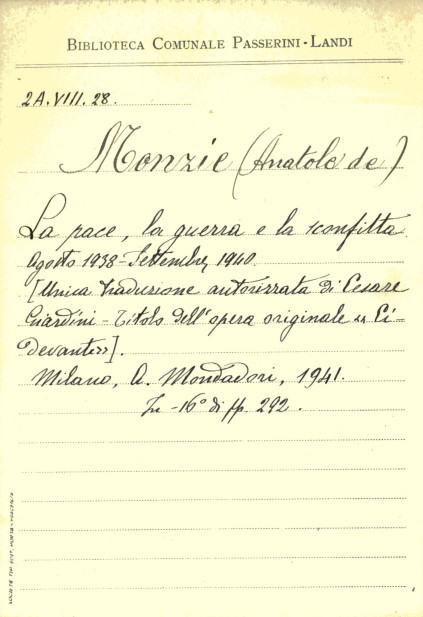 BIBLIOTECA COMUNALE PASSERINI-LANDI
2A.VIII.28.
Monzie (Anatole de)
La pace, la guerra e la sconfitta
Agosto 1938-Settembre 1940.
[Unica traduzione autorizzata di Cesare
Giardini - Titolo dell'opera originale «Ci-
Devant»].
Milano, A. Mondadori, 1941.
In-16° di pp. 292.